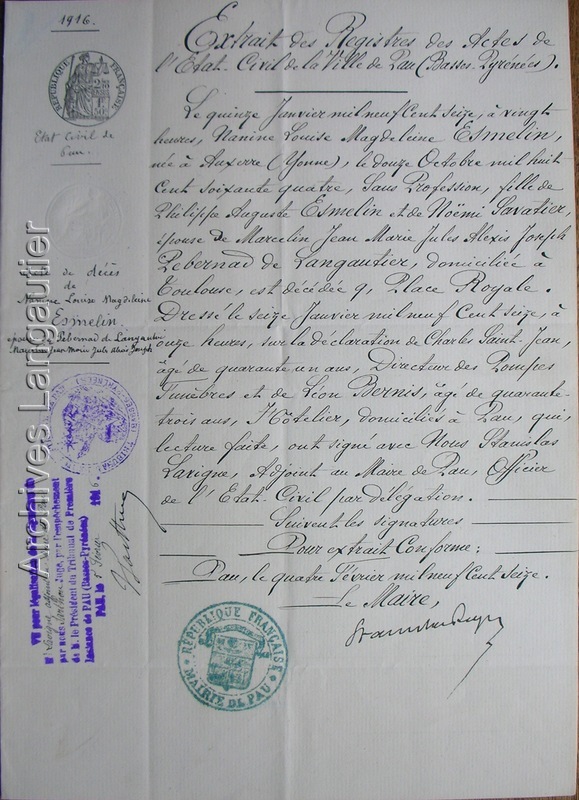 1916.
RÉPUBLIQUE FRANÇAISE
Etat Civil de
Pau.
de décès
de
Nanine Louise Magdeleine
Esmelin.
Pebernad de Langautier
Marcelin Jean Marie Jules Alexis Joseph
Extrait des Registres des Actes de
l'Etat-Civil de la Ville de Pau (Basses-Pyrénées).
Le quinze Janvier mil neuf Cent seize, à vingt
heures, Nanine Louise Magdeleine Esmelin,
née à Auxerre (Yonne), le douze Octobre mil huit
Cent soixante quatre, Sans Profession, fille de
Philippe Auguste Esmelin et de Noëmi Savatier,
épouse de Marcelin Jean Marie Jules Alexis Joseph
Pebernad de Langautier, domiciliée à
Toulouse, est décédée 9, Place Royale.
Dressé le seize Janvier mil neuf Cent seize, à
onze heures, sur la déclaration de Charles Saint-Jean,
âgé de quarante un ans, Directeur des Pompes
Funèbres et de Léon Bernis, âgé de quarante-
trois ans, Hôtelier, domiciliés à Pau, qui,
lecture faite, ont signé avec Nous Stanislas
Lavigne, Adjoint au Maire de Pau, Officier
de l'Etat-Civil par délégation.
Suivent les signatures
Pour extrait Conforme:
Pau, le quatre Février mil neuf Cent seize.
Le Maire,
VU pour légalisation de
par nous Juge, par l'empêchement
de M. le Président du Tribunal de Première
Instance de PAU (Basses-Pyrénées)
PAU, le 5 1916.
RÉPUBLIQUE FRANÇAISE
MAIRIE DE PAU
Archives Langautier